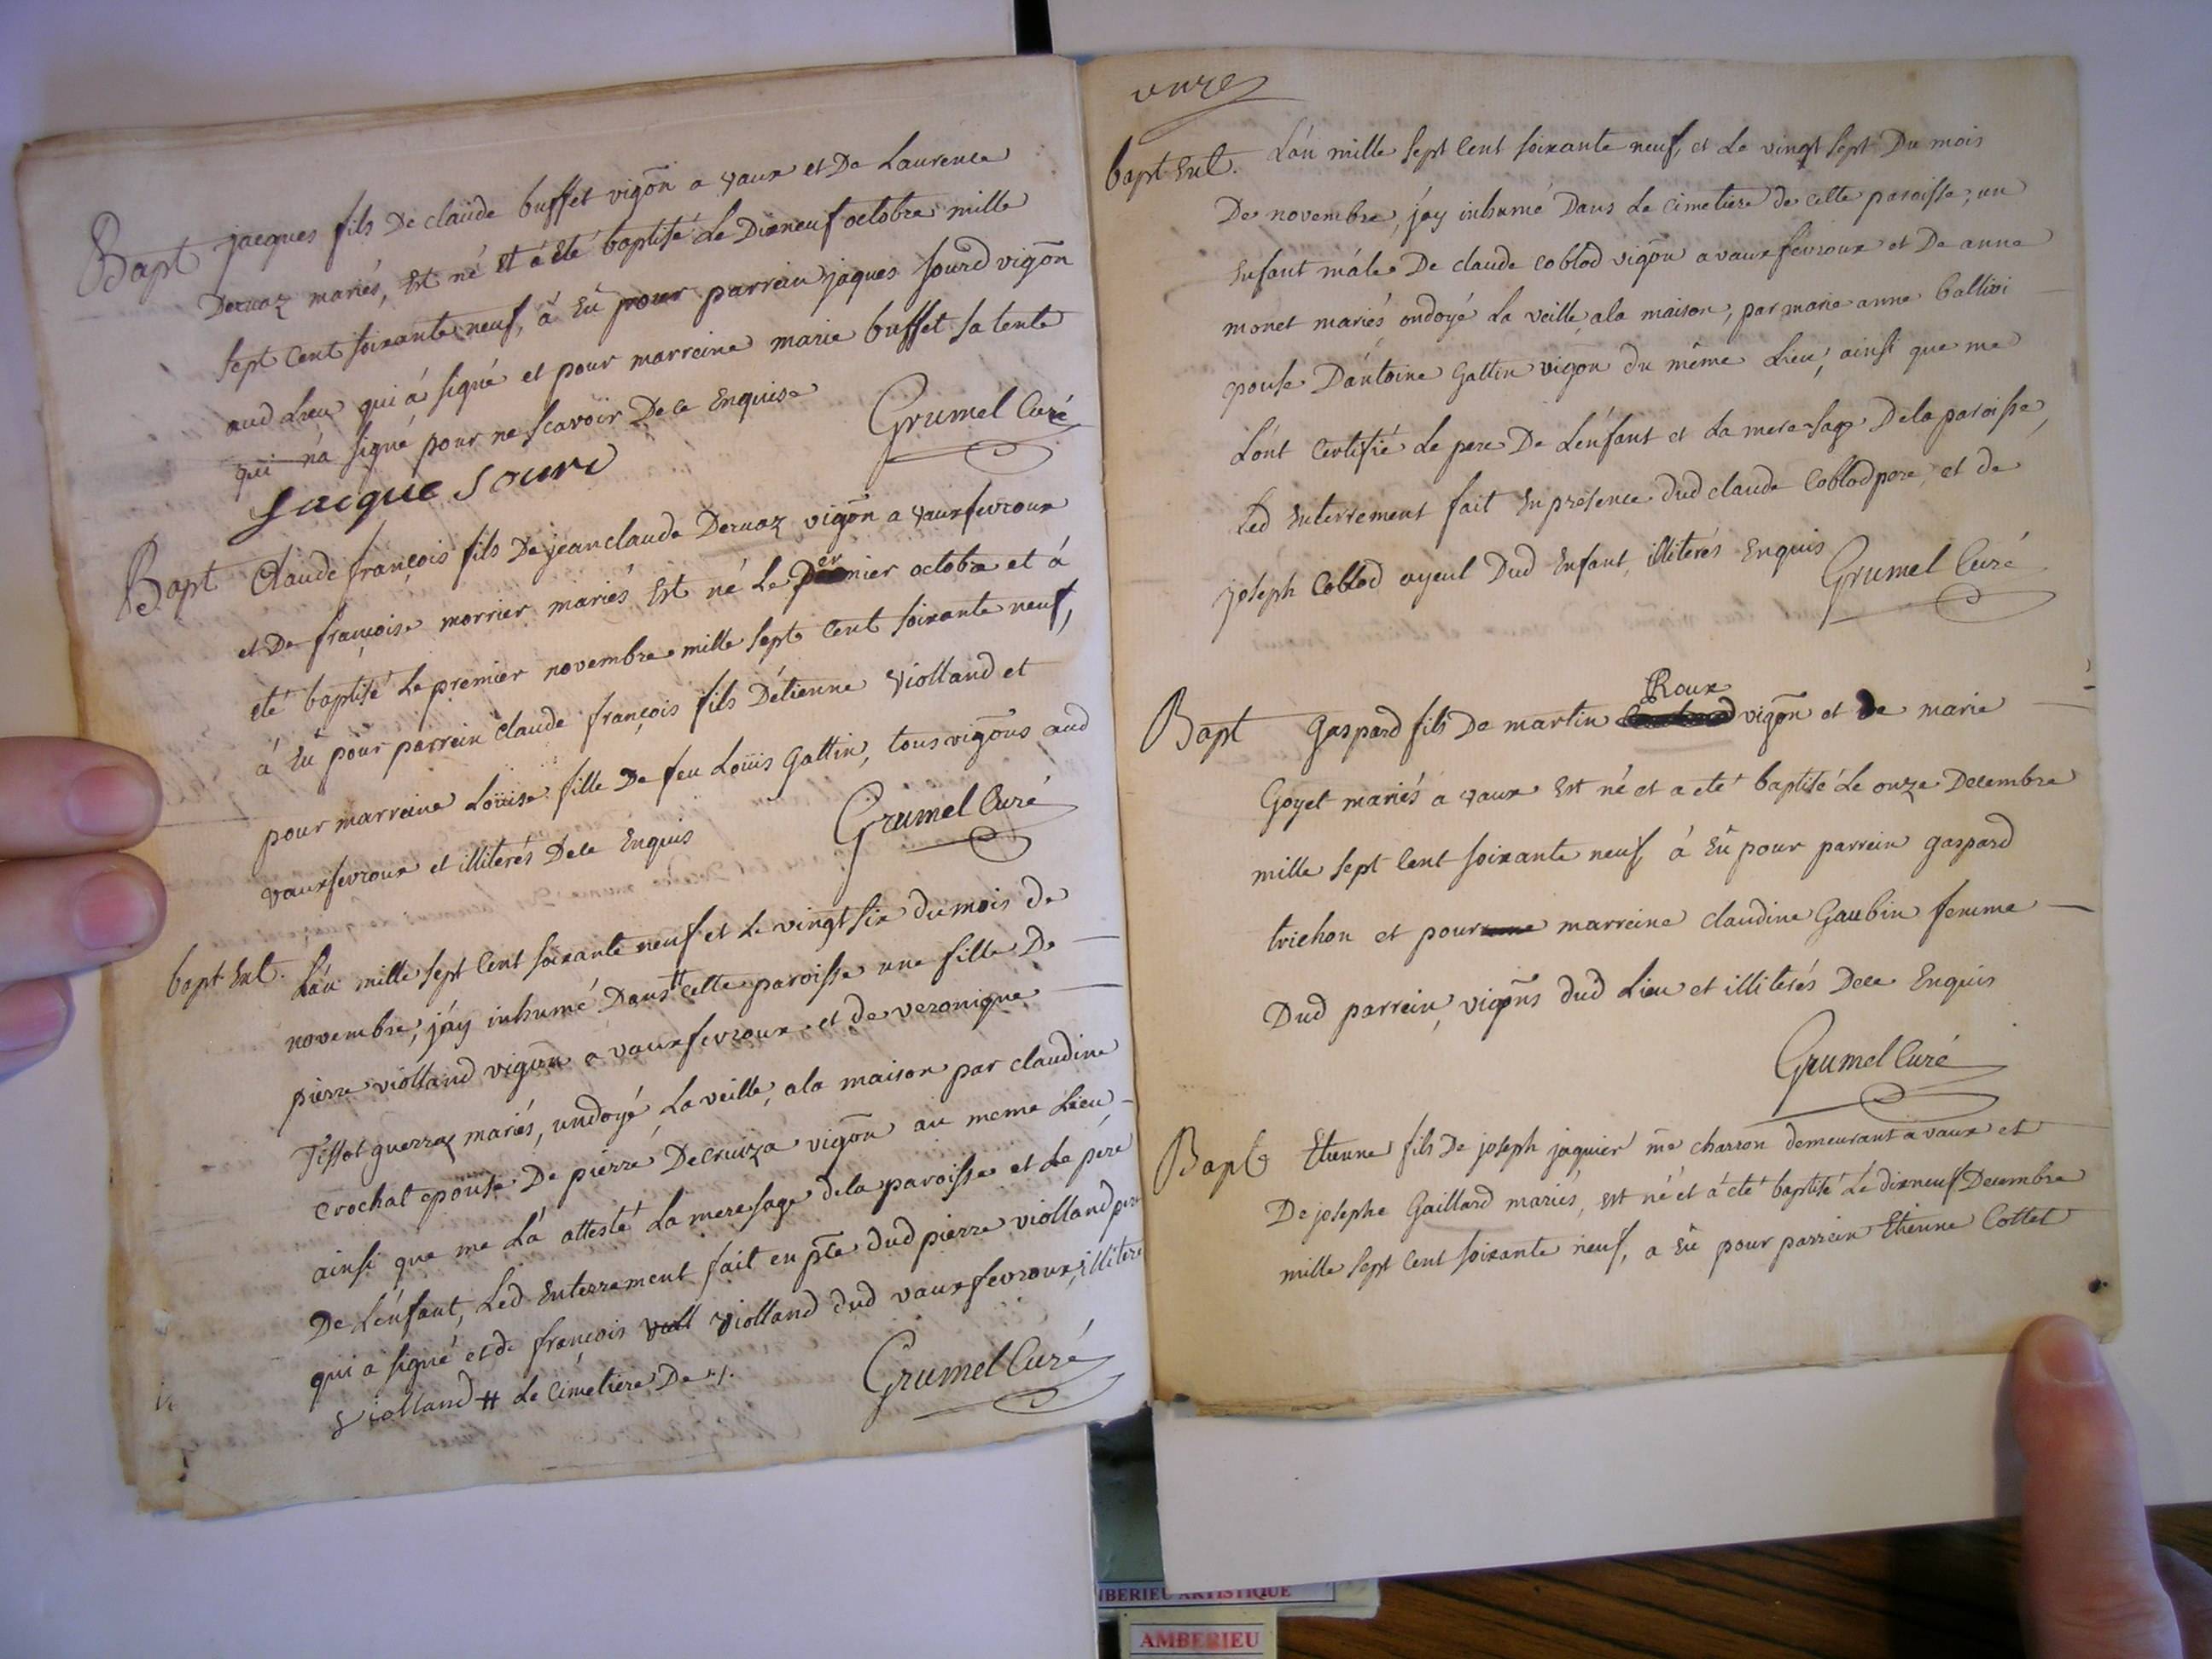 Bapt jacques fils De claude buffet vigōn a vaux et De Laurence
Dernaz mariés, Est né et à été baptisé Le Dixneuf octobre mille
sept cent soixante neuf, à Eû pour parrein jaques sourd vigōn
aud Lieu qui á signé et pour marreine marie buffet sa tente
qui n'á signé pour ne scavoir De ce Enquise
Grumel Curé
Jacque Sourd
Bapt Claude françois fils De jean claude Dernaz vigōn a vauxfevroux
et De françoise morrier mariés Est né Le premier octobre et á
été baptisé Le premier novembre mille sept cent soixante neuf,
á Eû pour parrein claude françois fils D'étienne Violland et
pour marreine Loüise fille De feu Loüis Gattin, tous vigōns aud
vauxfevroux et illiterés De ce Enquis
Grumel Curé
bapt Ent. L'an mille sept Cent soixante neuf et Le vingt six du mois de
novembre, j'ay inhumé Dans # cette paroisse une fille De
pierre violland vigōn a vauxfevroux et de veronique
Tissot guerraz mariés, undoyé La veille, a la maison par claudine
Crochat epouse De pierre Decruiza vigōn au meme Lieu
ainsi que me L'á attesté La mere sage de la paroisse et Le pere
De L'enfant, Led Enterrement fait en pce dud pierre violland pere
qui a signé et de françois Violland dud vauxfevroux, illitere
Violland # Le Cimetiere De ./.
Grumel Curé
onze
bapt Ent. L'an mille sept Cent soixante neuf, et Le vingt sept Du mois
De novembre, j'ay inhumé Dans Le cimetiere de cette paroisse, un
Enfant mále De claude Coblod vigōn a vauxfevroux et De anne
monet mariés ondoyé La veille, a la maison, par marie anne ballivi
epouse D'antoine Gattin vigōn du même Lieu, ainsi que me
L'ont Certifié Le pere De L'enfant et La mere sage De la paroisse,
Led Enterrement fait En présence dud claude Coblod pere, et de
joseph Coblod ayeul Dud Enfant, illiterés Enquis
Grumel Curé
Roux
Bapt Gaspard fils De martin vigōn et De marie
Goyet mariés a vaux Est né et a eté baptisé Le onze Decembre
mille sept Cent soixante neuf, à Eû pour parrein gaspard
trichon et pour marreine claudine Gaubin femme
Dud parrein, vigōns dud Lieu et illiterés De ce Enquis
Grumel Curé
Bapt Etienne fils De joseph jaquier me charron demeurant a vaux et
De josephe Gaillard mariés, Est né et á été baptisé Le dixneuf Decembre
mille sept Cent soixante neuf, a Eû pour parrein Etienne Cottet
AMBERIEU ARTISTIQUE
AMBERIEU